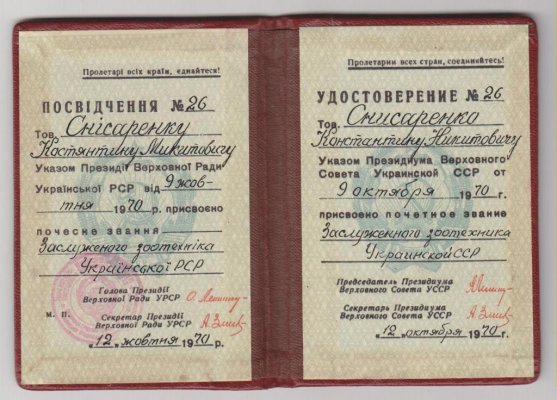 Пролетарі всіх країн, єднайтеся!
ПОСВІДЧЕННЯ № 26
Тов. Снісаренку
Костянтину Микитовичу
Указом Президії Верховної Ради
Української РСР від 9 жов-
тня 1970 р. присвоєно
почесне звання
Заслуженого зоотехніка
Української РСР
Голова Президії
Верховної Ради УРСР
М. П.
Секретар Президії
Верховної Ради УРСР
„12„ жовтня 1970 р.
Пролетарии всех стран, соединяйтесь!
УДОСТОВЕРЕНИЕ № 26
Тов. Снисаренко
Константину Никитовичу
Указом Президиума Верховного
Совета Украинской ССР от
9 октября 1970 г.
присвоено почетное звание
Заслуженного зоотехника
Украинской ССР
Председатель Президиума
Верховного Совета УССР
Секретарь Президиума
Верховного Совета УССР
„12„ октября 1970 г.